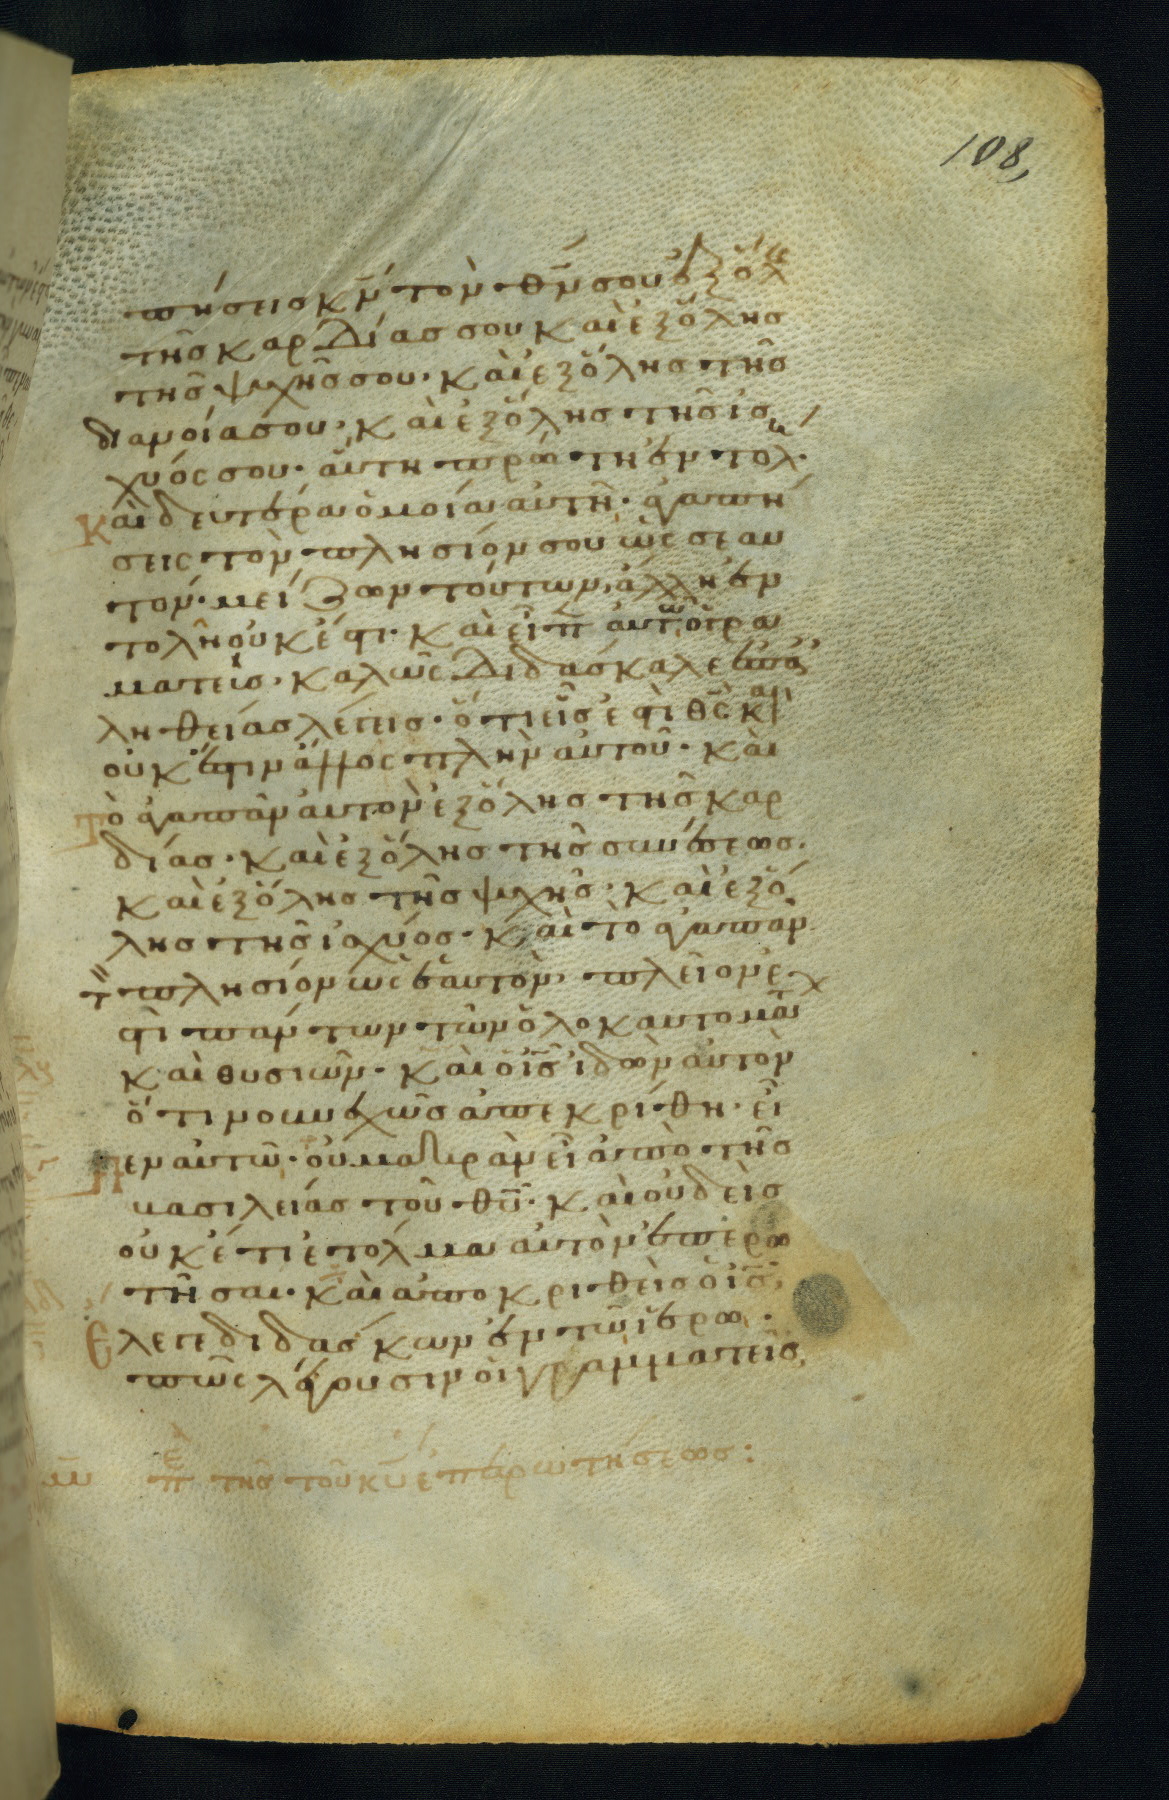 108,
πήσεις κ̅ν̅ τὸν θ̅ν̅ σου ἐξ ὅλης
τῆς καρδίας σου καὶ ἐξ ὅλης
τῆς ψυχῆς σου· καὶ ἐξ ὅλης τῆς
διανοίας σου· καὶ ἐξ ὅλης τῆς ἰσ
χύος σου· αὕτη πρώτη ἐντολ·
Καὶ δευτέρα ὁμοία αὐτῆ· ἀγαπή
σεις τὸν πλησίον σου ὡς σεαυ
τόν· μείζων τούτων ἄλλη ἐν
τολὴ οὐκ ἔστι· καὶ εἶπ αὐτῶ ὁ γρα
ματεύς· καλῶς διδάσκαλε ἐπ ἀ
ληθείας λέγεις· ὅτι εἷς ἐστὶ θ̅ς̅ καὶ
οὐκ ἔστιν ἄλλος πλὴν αὐτοῦ· καὶ
Τὸ ἀγαπᾶν αὐτὸν ἐξ ὅλης τῆς καρ
δίας· καὶ ἐξ ὅλης τῆς συνέσεως·
καὶ ἐξ ὅλης τῆς ψυχῆς· καὶ ἐξ ὅ
λης τῆς ἰσχύος· καὶ τὸ ἀγαπᾶν
τ πλησίον ὡς ἑαυτὸν πλεῖον ἐ
στὶ πάντων τῶν ὁλοκαυτομάτ
καὶ θυσιῶν· καὶ ὁ ι̅ς̅ ἰδὼν αὐτὸν
ὅτι νουνεχῶς ἀπεκρίθη· εἶ
Πεν αὐτῶ· οὐ μακρὰν εἶ ἀπὸ τῆς
βασιλείας τοῦ θ̅υ̅· καὶ οὐδεὶς
οὐκέτι ἐτόλμα αὐτὸν ἐπερω
τῆσαι· καὶ ἀποκριθεὶς ὁ ι̅ς̅
Ἔλεγε διδάσκων ἐν τῶ ἱερῶ·
πῶς λέγουσιν οἱ γραμματεῖς
π τῆς τοῦ κ̅υ̅ ἐπερωτήσεως: